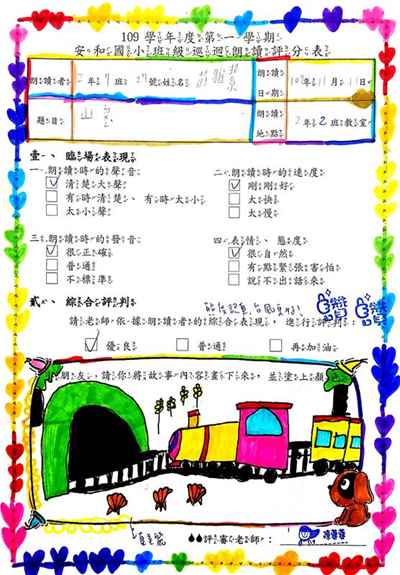 109 學年度第一學期
安和國小班級巡迴朗讀評分表
朗讀者 2年7班27號姓名
朗讀日期 109年11月11日
題目 山
朗讀地點 2年2班教室
壹、臨場表現
一、朗讀時的聲音
清楚大聲
有時清楚、有時太小
太小聲
二、朗讀時的速度
剛剛好
太快
太慢
三、朗讀時的發音
很正確
普通
不標準
四、表情、態度
很自然
有點緊張害怕
說不出話來
貳、綜合評判
請老師依據朗讀者的綜合表現,進行評判:
優良
普通
再加油
小朋友,請你將故事內容畫下來,並塗上顏色
評審老師: